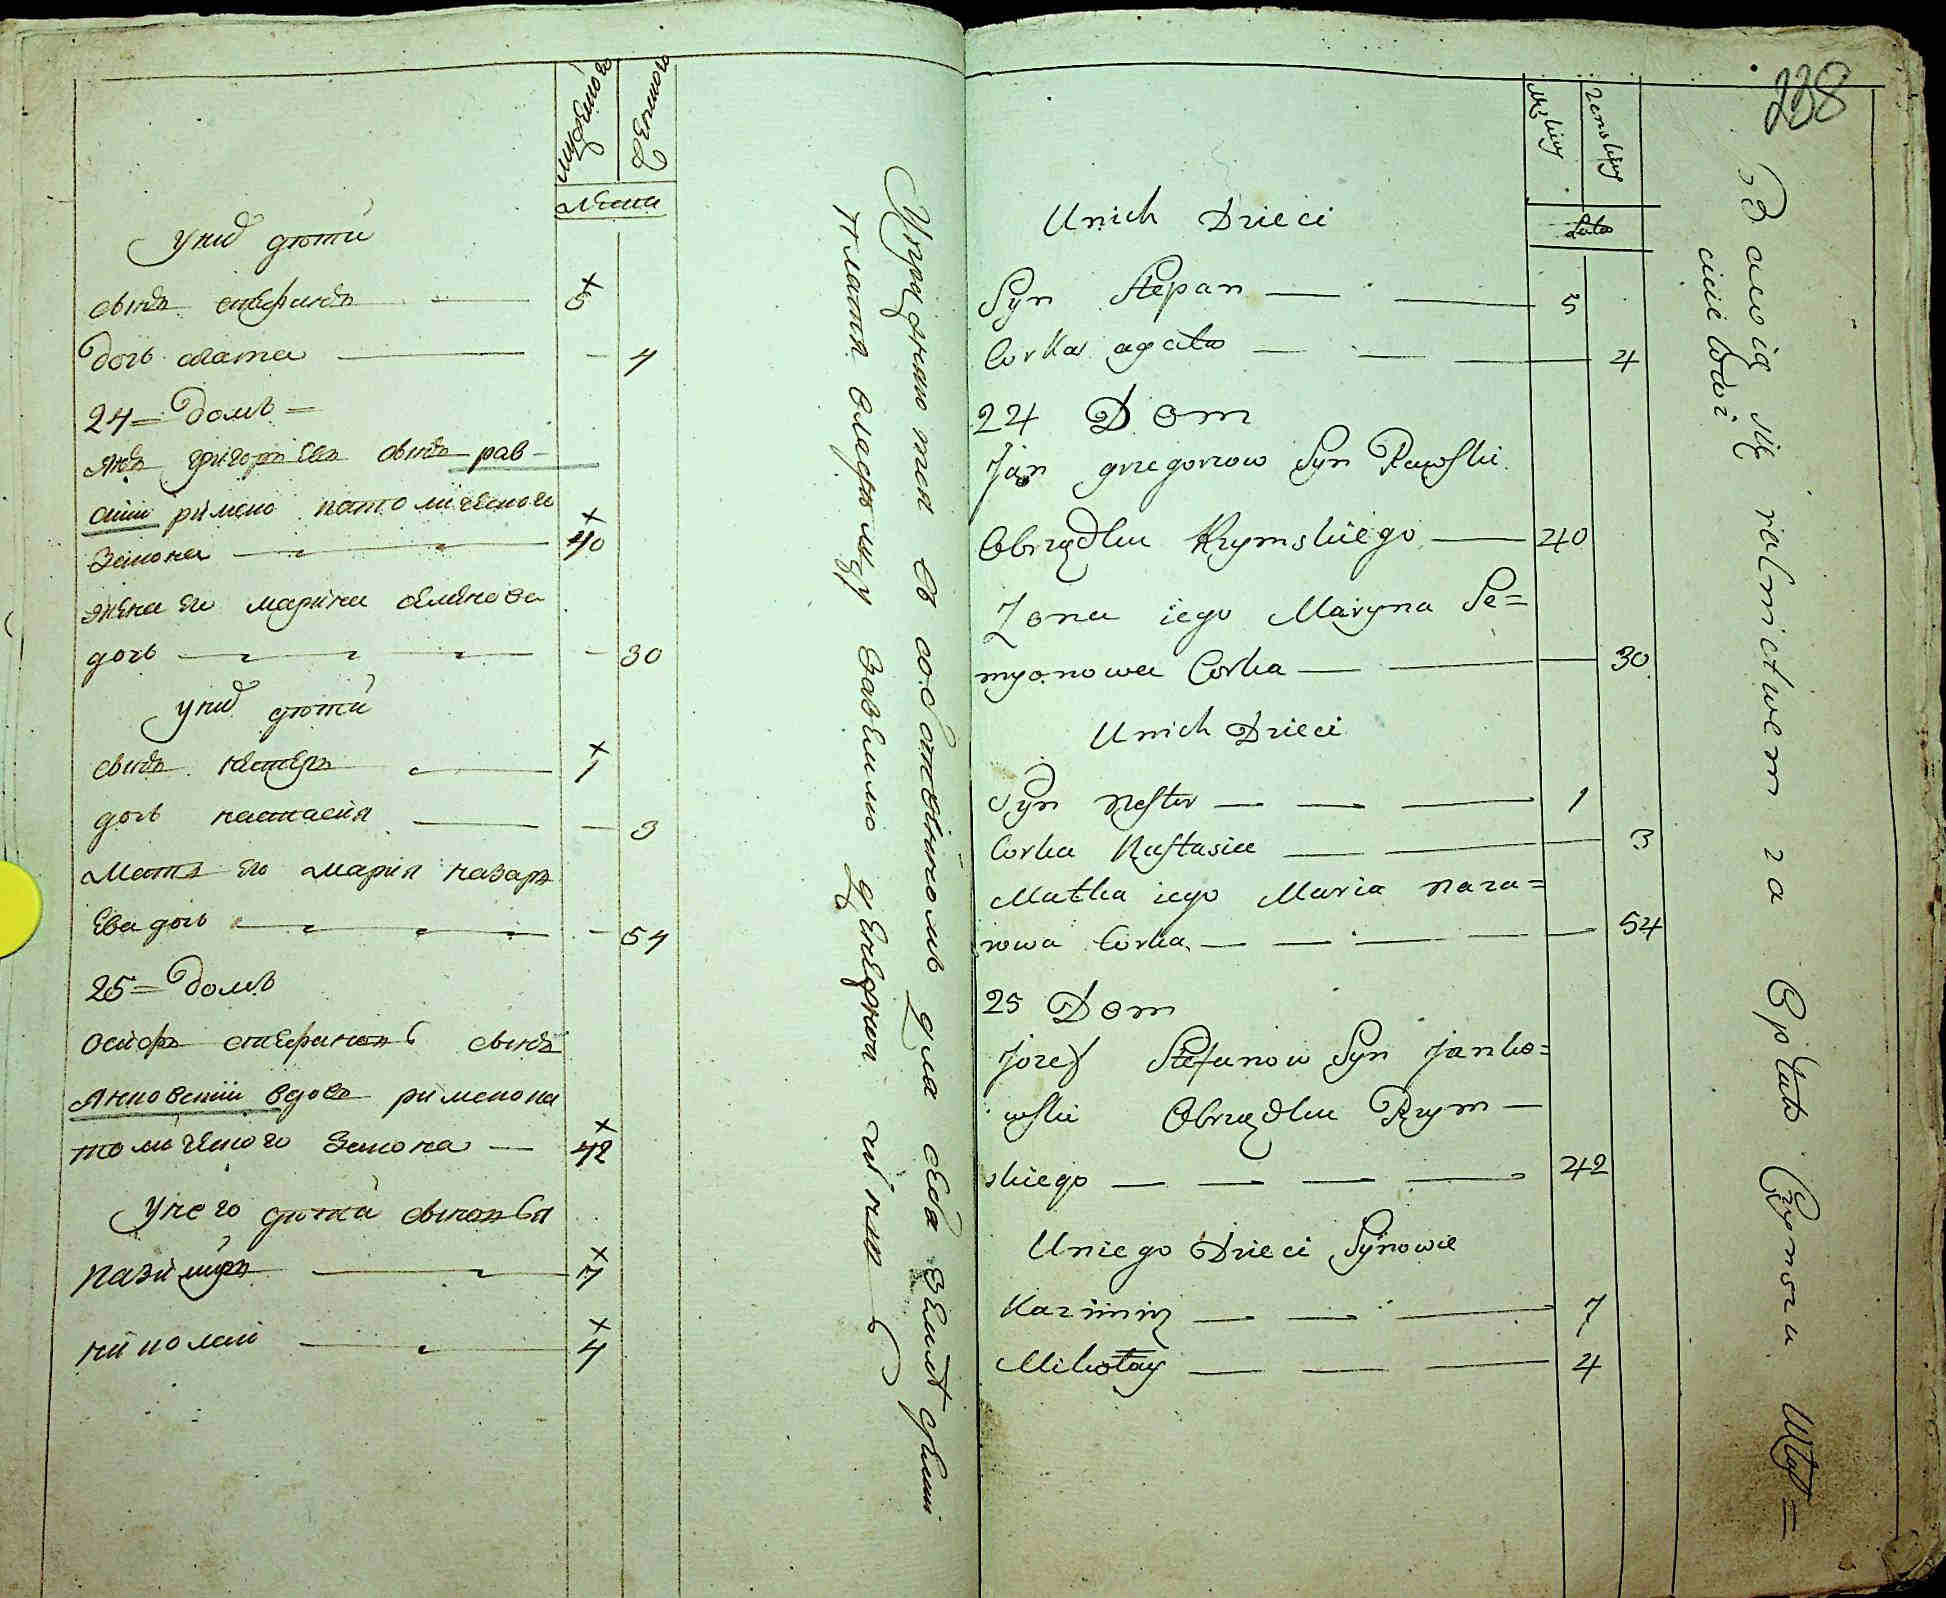 мужеска
женска
лета
У них дети
сынъ стефанъ 5
дочь агата 4
24 = домъ =
янъ григорьевъ сынъ рав-
скии римско католическаго
закона 40
жена его марина семенова
дочь 30
У них дети
сынъ нестеръ 1
дочь настасия 3
мать его мария назарь
ева дочь 54
25 = домъ
осифъ стефановъ сынъ
янковскии вдовъ римско ка
толическаго закона 42
У него дети сыновья
казимиръ 7
николай 4
238
Męskiey
Zenskiey
Lata
Unich Dzieci
Syn Stepan 5
Corka agata 4
24 Dom
Jan grzegorzow Syn Rawski
Obrządku Rzymskiego 40
Zona iego Maryna Se=
myonowa Corka 30
Unich Dzieci
Syn Nester 1
Corka Nastasia 3
Matka iego Maria naza=
rowa Corka 54
25 Dom
Jozef Stefanow Syn Janko=
wski Obrządku Rzym-
skiego 42
Uniego Dzieci Synowie
Kazimirz 7
Mikołay 4
Bawią się rolnictwem za Opłatą Czynszu Włas=
cicielowi